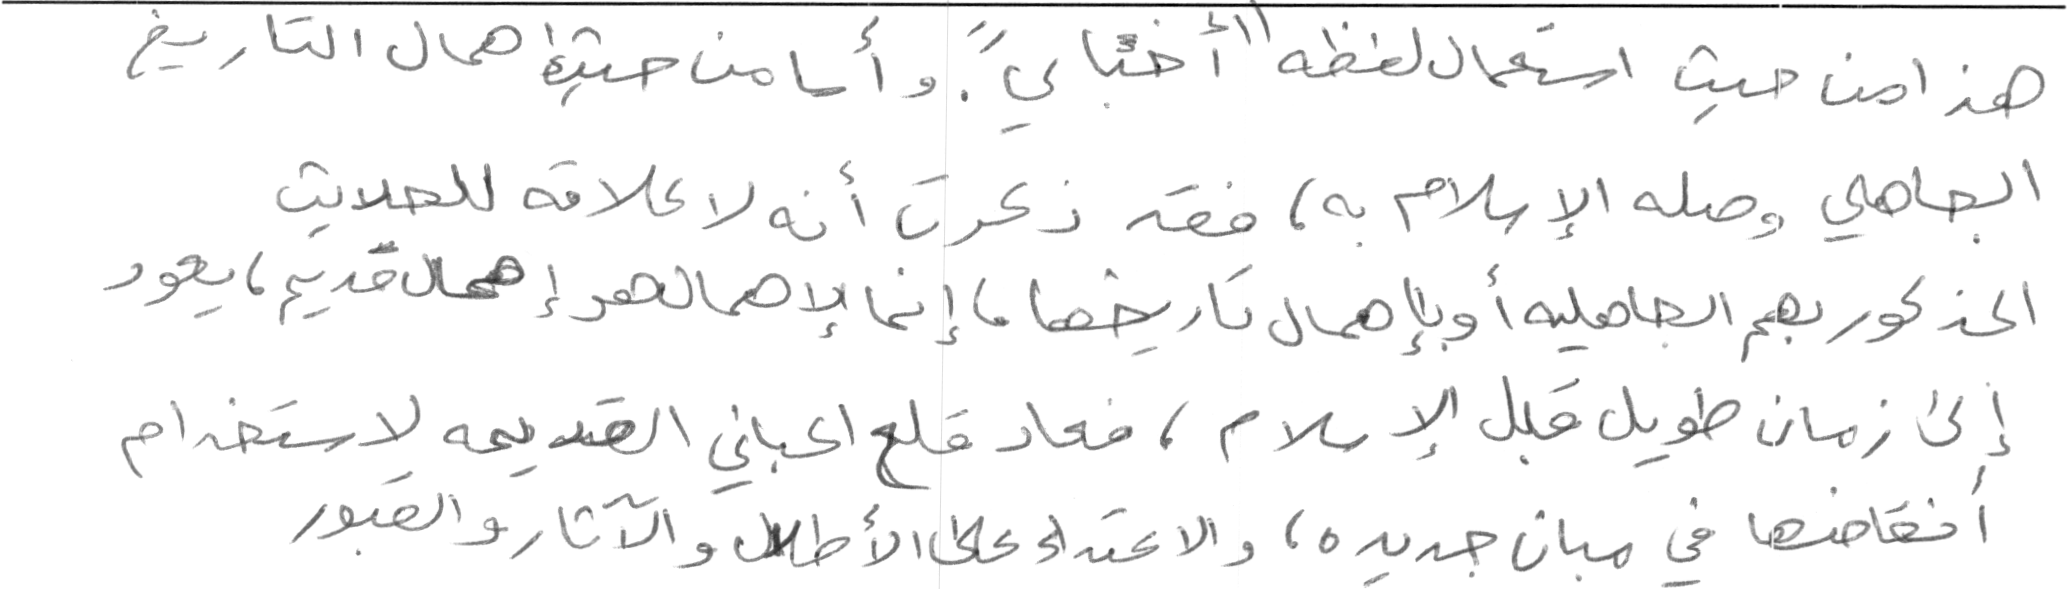 هذا من حيث استعمال لفظه "أختباري". وأما من حيث إهمال التاريخ
الجاهلي وصله الإسلام به، فقد ذكرت أنه لا علاقه للحديث
المذكور بهم الجاهليه أو بإهمال تاريخها، إنما الإهمال هو إهمال قديم، يعود
إلى زمان طويل قبل الإسلام، فعاد قلع المباني القديمه لاستخدام
أنقاضها في مبان جديده، والاعتداء على الأطلال والآثار والقبور